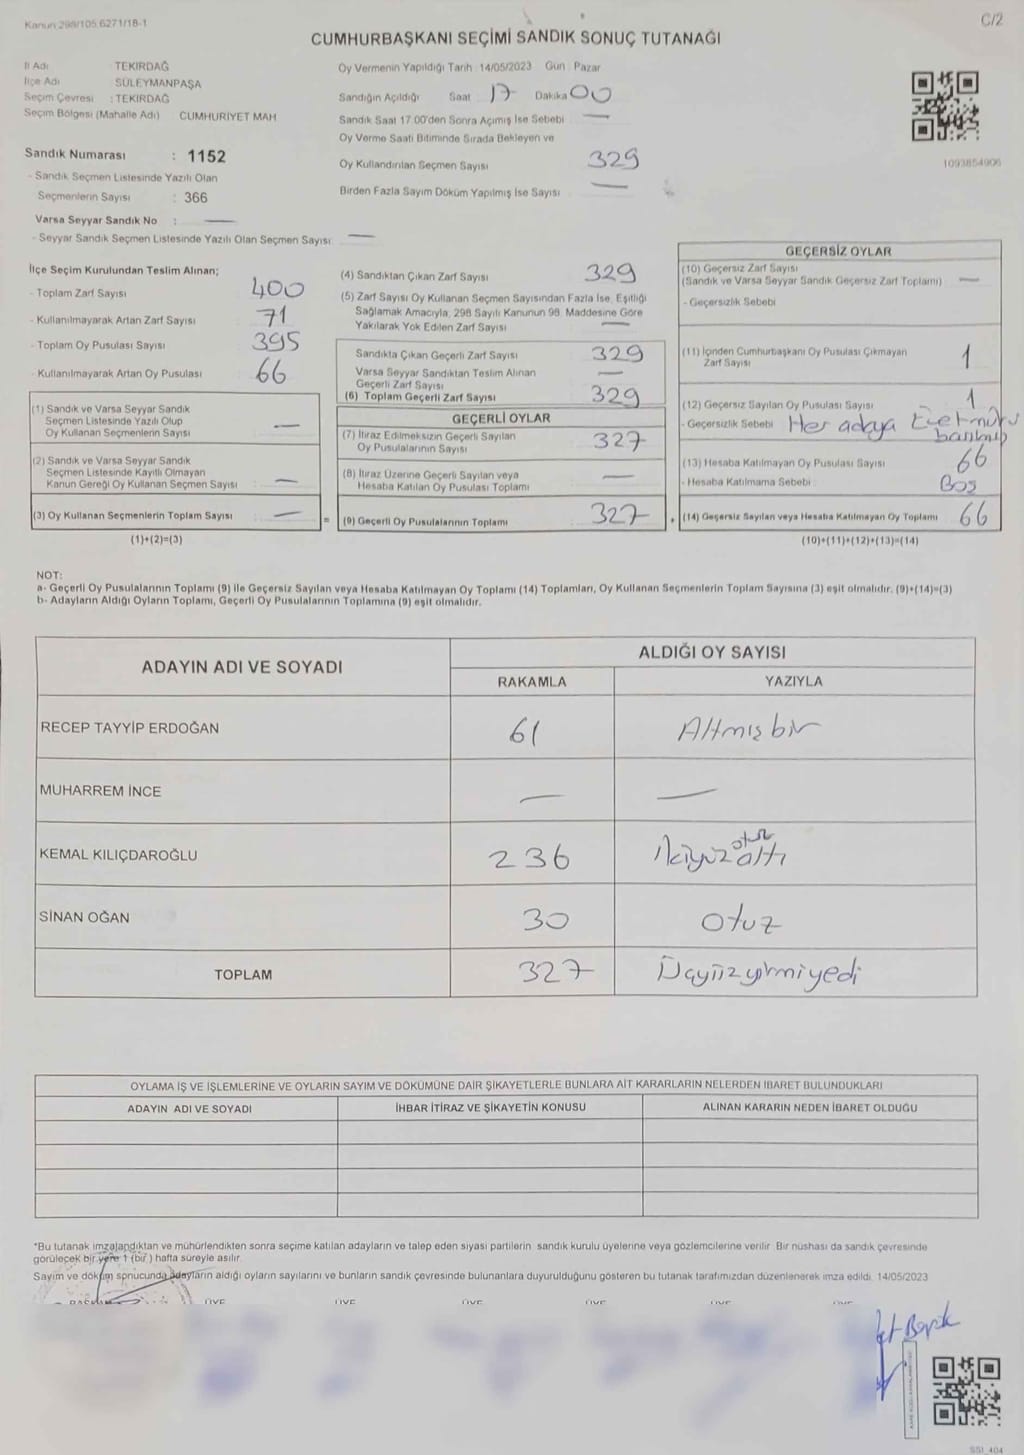 Kanun 298/105 6271/18-1
C/2
CUMHURBAŞKANI SEÇİMİ SANDIK SONUÇ TUTANAĞI
İl Adı : TEKİRDAĞ
İlçe Adı : SÜLEYMANPAŞA
Seçim Çevresi : TEKİRDAĞ
Seçim Bölgesi (Mahalle Adı) CUMHURİYET MAH
Sandık Numarası : 1152
- Sandık Seçmen Listesinde Yazılı Olan
Seçmenlerin Sayısı : 366
Varsa Seyyar Sandık No : —
- Seyyar Sandık Seçmen Listesinde Yazılı Olan Seçmen Sayısı: —
Oy Vermenin Yapıldığı Tarih 14/05/2023 Gün : Pazar
Sandığın Açıldığı Saat 17 Dakika 00
Sandık Saat 17.00'den Sonra Açımış İse Sebebi —
Oy Verme Saati Bitiminde Sırada Bekleyen ve
Oy Kullandırılan Seçmen Sayısı 329
Birden Fazla Sayım Döküm Yapılmış İse Sayısı —
1093854906
İlçe Seçim Kurulundan Teslim Alınan;
- Toplam Zarf Sayısı 400
- Kullanılmayarak Artan Zarf Sayısı 71
- Toplam Oy Pusulası Sayısı 395
- Kullanılmayarak Artan Oy Pusulası 66
(1) Sandık ve Varsa Seyyar Sandık
Seçmen Listesinde Yazılı Olup
Oy Kullanan Seçmenlerin Sayısı —
(2) Sandık ve Varsa Seyyar Sandık
Seçmen Listesinde Kayıtlı Olmayan
Kanun Gereği Oy Kullanan Seçmen Sayısı —
(3) Oy Kullanan Seçmenlerin Toplam Sayısı —
(1)+(2)=(3)
(4) Sandıktan Çıkan Zarf Sayısı 329
(5) Zarf Sayısı Oy Kullanan Seçmen Sayısından Fazla İse, Eşitliği
Sağlamak Amacıyla, 298 Sayılı Kanunun 98. Maddesine Göre
Yakılarak Yok Edilen Zarf Sayısı —
Sandıkta Çıkan Geçerli Zarf Sayısı 329
Varsa Seyyar Sandıktan Teslim Alınan
Geçerli Zarf Sayısı —
(6) Toplam Geçerli Zarf Sayısı 329
GEÇERLİ OYLAR
(7) İtiraz Edilmeksizin Geçerli Sayılan
Oy Pusulalarının Sayısı 327
(8) İtiraz Üzerine Geçerli Sayılan veya
Hesaba Katılan Oy Pusulası Toplamı —
= (9) Geçerli Oy Pusulalarının Toplamı 327
GEÇERSİZ OYLAR
(10) Geçersiz Zarf Sayısı
(Sandık ve Varsa Seyyar Sandık Geçersiz Zarf Toplamı) —
- Geçersizlik Sebebi
(11) İçinden Cumhurbaşkanı Oy Pusulası Çıkmayan
Zarf Sayısı 1
(12) Geçersiz Sayılan Oy Pusulası Sayısı 1
- Geçersizlik Sebebi Her adaya Evet mührü
basılmış
(13) Hesaba Katılmayan Oy Pusulası Sayısı 66
- Hesaba Katılmama Sebebi Boş
+ (14) Geçersiz Sayılan veya Hesaba Katılmayan Oy Toplamı 66
(10)+(11)+(12)+(13)=(14)
NOT:
a- Geçerli Oy Pusulalarının Toplamı (9) ile Geçersiz Sayılan veya Hesaba Katılmayan Oy Toplamı (14) Toplamları, Oy Kullanan Seçmenlerin Toplam Sayısına (3) eşit olmalıdır. (9)+(14)=(3)
b- Adayların Aldığı Oyların Toplamı, Geçerli Oy Pusulalarının Toplamına (9) eşit olmalıdır.
ADAYIN ADI VE SOYADI
ALDIĞI OY SAYISI
RAKAMLA YAZIYLA
RECEP TAYYİP ERDOĞAN 61 Altmışbir
MUHARREM İNCE — —
KEMAL KILIÇDAROĞLU 236 İkiyüz otuz altı
SİNAN OĞAN 30 otuz
TOPLAM 327 Üçyüzyirmiyedi
OYLAMA İŞ VE İŞLEMLERİNE VE OYLARIN SAYIM VE DÖKÜMÜNE DAİR ŞİKAYETLERLE BUNLARA AİT KARARLARIN NELERDEN İBARET BULUNDUKLARI
ADAYIN ADI VE SOYADI İHBAR İTİRAZ VE ŞİKAYETİN KONUSU ALINAN KARARIN NEDEN İBARET OLDUĞU
*Bu tutanak imzalandıktan ve mühürlendikten sonra seçime katılan adayların ve talep eden siyasi partilerin sandık kurulu üyelerine veya gözlemcilerine verilir. Bir nüshası da sandık çevresinde
görülecek bir yere 1 (bir) hafta süreyle asılır.
Sayım ve döküm sonucunda adayların aldığı oyların sayılarını ve bunların sandık çevresinde bulunanlara duyurulduğunu gösteren bu tutanak tarafımızdan düzenlenerek imza edildi. 14/05/2023
BAŞKAN ÜYE ÜYE ÜYE ÜYE ÜYE ÜYE
SSI_404